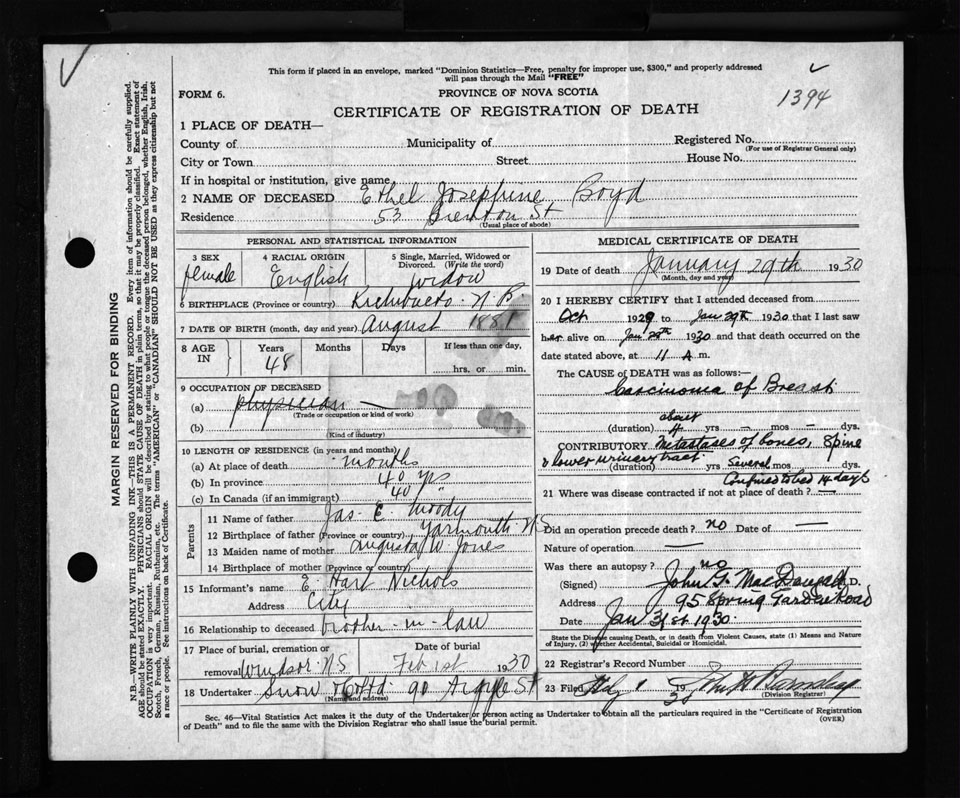 This form if placed in an envelope, marked "Dominion Statistics—Free, penalty for improper use, $300," and properly addressed
will pass through the Mail "FREE"
FORM 6.
PROVINCE OF NOVA SCOTIA
1394
CERTIFICATE OF REGISTRATION OF DEATH
1 PLACE OF DEATH—
County of Municipality of Registered No.
(For use of Registrar General only)
City or Town Street House No.
If in hospital or institution, give name
2 NAME OF DECEASED Ethel Josephine Boyd
Residence 53 Brenton St
(Usual place of abode)
PERSONAL AND STATISTICAL INFORMATION
3 SEX female
4 RACIAL ORIGIN English
5 Single, Married, Widowed or Divorced. (Write the word) widow
6 BIRTHPLACE (Province or country) Richibucto. N.B.
7 DATE OF BIRTH (month, day and year) August 1881
8 AGE IN Years 48 Months Days If less than one day, hrs. or min.
9 OCCUPATION OF DECEASED
(a) physician —
(Trade or occupation or kind of work)
(b)
(Kind of industry)
10 LENGTH OF RESIDENCE (in years and months)
(a) At place of death months
(b) In province 40 yrs
(c) In Canada (if an immigrant) 40 "
Parents
11 Name of father Jas E. Moody
12 Birthplace of father (Province or country) Yarmouth N S
13 Maiden name of mother Augusta W Jones
14 Birthplace of mother (Province or country)
15 Informant's name E. Hart Nichols
Address City
16 Relationship to deceased brother-in-law
17 Place of burial, cremation or removal Windsor N S
Date of burial Feb 1st 1930
18 Undertaker Snow & Co Ltd 90 Argyle St
(Name and address)
MEDICAL CERTIFICATE OF DEATH
19 Date of death January 29th 1930
(Month, day and year)
20 I HEREBY CERTIFY that I attended deceased from
Oct 1929 to Jan 29th 1930 that I last saw
her alive on Jan 29th 1930 and that death occurred on the
date stated above, at 11 A m.
The CAUSE OF DEATH was as follows:—
Carcinoma of Breast
about
(duration) 4 yrs — mos — dys.
CONTRIBUTORY Metastases of bones, Spine
& lower urinary tract.
(duration) yrs Several mos dys.
Confined to bed 14 days
21 Where was disease contracted if not at place of death? —
Did an operation precede death? no Date of —
Nature of operation —
Was there an autopsy? no
(Signed) John G. MacDougall M.D.
Address 95 Spring Garden Road
Date Jan 31st 1930.
State the Disease causing Death, or in death from Violent Causes, state (1) Means and Nature
of Injury, (2) whether Accidental, Suicidal or Homicidal.
22 Registrar's Record Number
23 Filed 1 1930
(Division Registrar)
Sec. 46—Vital Statistics Act makes it the duty of the Undertaker or person acting as Undertaker to obtain all the particulars required in the "Certificate of Registration
of Death" and to file the same with the Division Registrar who shall issue the burial permit. (OVER)
MARGIN RESERVED FOR BINDING
N.B.—WRITE PLAINLY WITH UNFADING INK—THIS IS A PERMANENT RECORD. Every item of information should be carefully supplied.
AGE should be stated EXACTLY. PHYSICIANS should STATE CAUSE OF DEATH in plain terms, so that it may be properly classified. Exact statement of
OCCUPATION is very important. RACIAL ORIGIN will be described by stating to what people or tongue the deceased person belonged, whether English, Irish,
Scotch, French, German, Russian, Ruthenian, etc. The terms "AMERICAN" or "CANADIAN" SHOULD NOT BE USED as they express citizenship but not
a race or people. See instructions on back of Certificate.